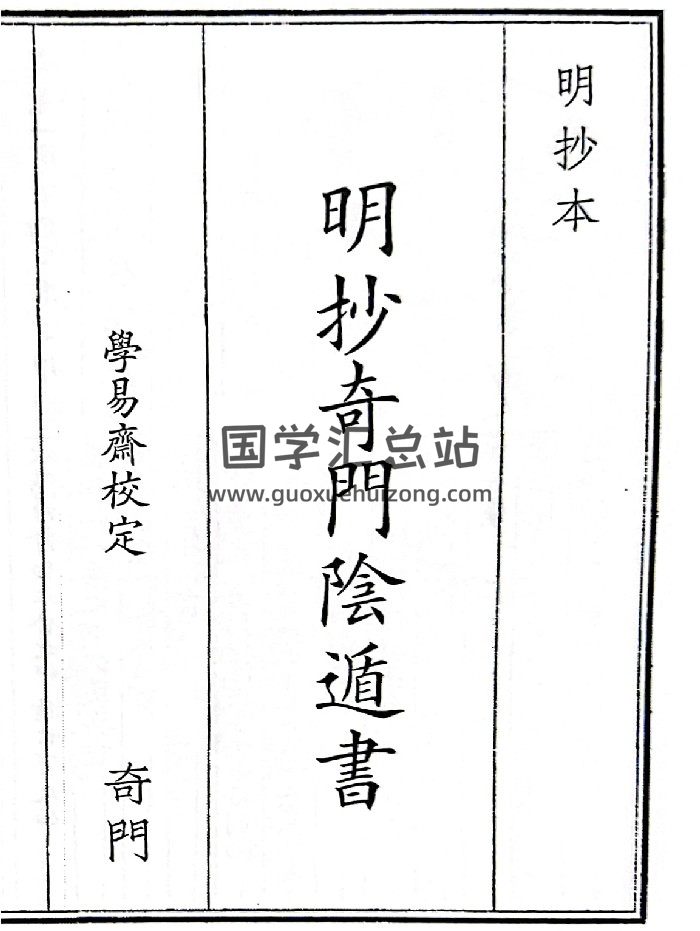 明抄本
明抄奇門陰遁書
學易齋校定
奇門
国学汇总站
www.guoxuehuizong.com